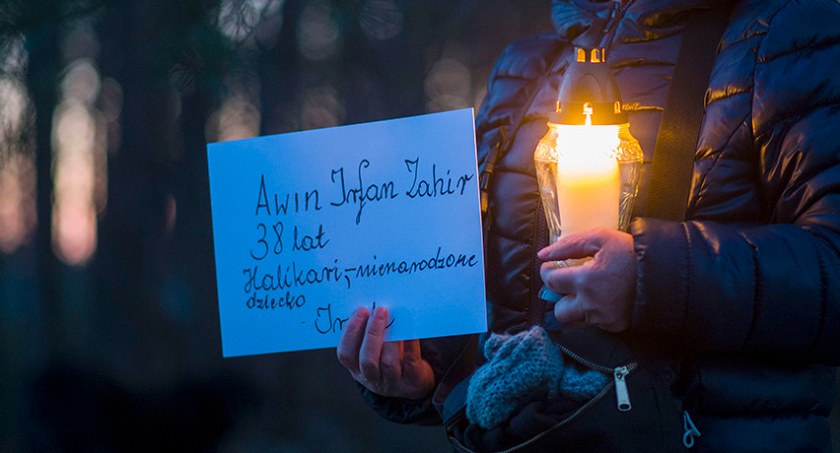 Awin Irfan Zahir
38 lat
Halikari, - nienarodzone
dziecko